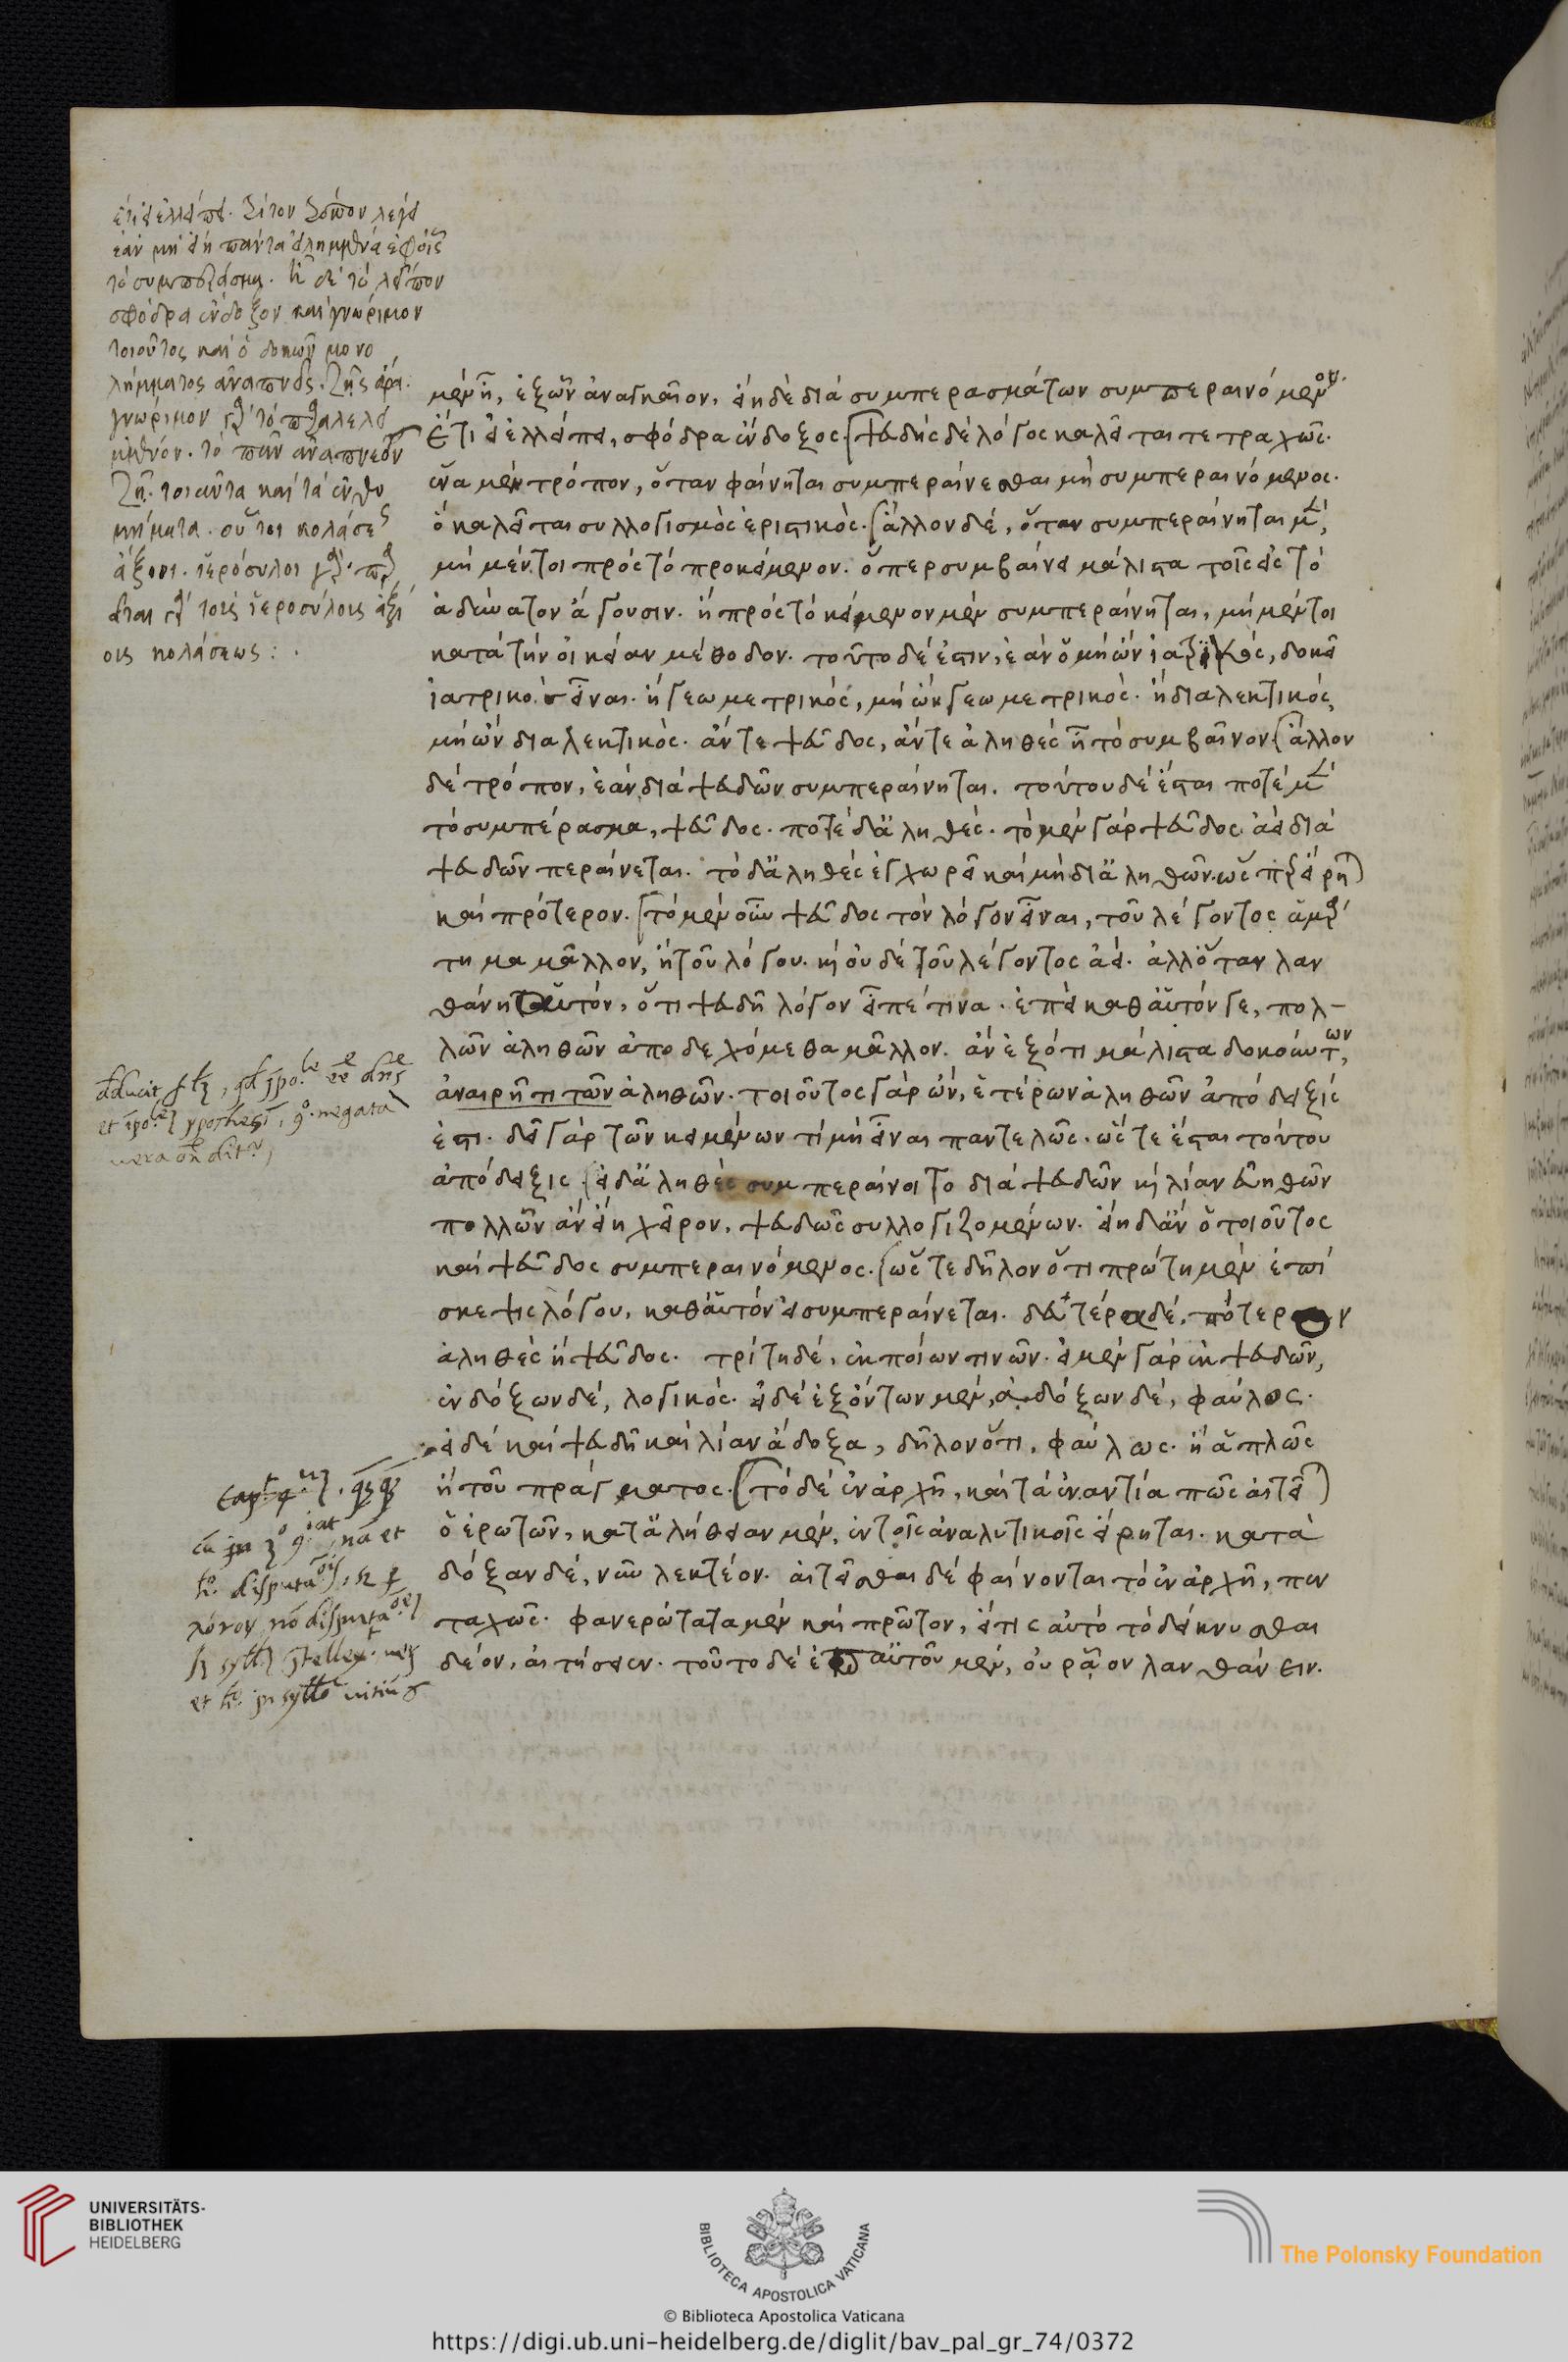 ἔτι εἰ ἐλλείπει. λέγει
ἐὰν μὴ εἴη πάντα εἰλημμένα ἐφ' οἷς
τὸ συμπέρασμα. ᾖ δὲ τὸ λεῖπον
σφόδρα ἔνδοξον καὶ γνώριμον
τοιοῦτος καὶ ὁ δοκῶν μονο
λήμματος ἀναπνεῖς. ζῇς ἄρα.
γνώριμον γὰρ τὸ παραλελει
μμένον. τὸ πᾶν ἀναπνέον
ζῇ. τοιαῦτα καὶ τὰ ἐνθυ
μήματα. οὗτοι κολάσεως
ἄξιοι. ἱερόσυλοι γάρ. παρ
εῖται γὰρ τοὺς ἱεροσύλους ἀξί
ους κολάσεως:.
μένη, ἐξ ὧν ἀναγκαῖον, εἴη δὲ διὰ συμπερασμάτων συμπεραινόμενον.
Ἔτι εἰ ἐλλείπει, σφόδρα ἔνδοξος. ψευδὴς δὲ λόγος καλεῖται τετραχῶς.
ἕνα μὲν τρόπον, ὅταν φαίνηται συμπεραίνεσθαι μὴ συμπεραινόμενος.
ὃ καλεῖται συλλογισμὸς ἐριστικός. ἄλλον δέ, ὅταν συμπεραίνηται μέν,
μὴ μέντοι πρὸς τὸ προκείμενον. ὅπερ συμβαίνει μάλιστα τοῖς εἰς τὸ
ἀδύνατον ἄγουσιν. ἢ πρὸς τὸ κείμενον μὲν συμπεραίνηται, μὴ μέντοι
κατὰ τὴν οἰκείαν μέθοδον. τοῦτο δέ ἐστιν, ἐὰν ὁ μὴ ὢν ἰατρικός, δοκεῖ
ἰατρικὸς εἶναι. ἢ γεωμετρικός, μὴ ὢν γεωμετρικός. ἢ διαλεκτικός,
μὴ ὢν διαλεκτικός. ἄν τε ψεῦδος, ἄν τε ἀληθὲς ᾖ τὸ συμβαῖνον. ἄλλον
δὲ τρόπον, ἐὰν διὰ ψευδῶν συμπεραίνηται. τούτου δὲ ἔσται ποτὲ μὲν
τὸ συμπέρασμα, ψεῦδος. ποτὲ δ' ἀληθές. τὸ μὲν γὰρ ψεῦδος ἀεὶ διὰ
ψευδῶν περαίνεται. τὸ δ' ἀληθὲς ἐγχωρεῖ καὶ μὴ δι' ἀληθῶν. ὡς προείρηται
καὶ πρότερον. τὸ μὲν οὖν ψεῦδος τὸν λόγον εἶναι, τοῦ λέγοντος ἁμάρ
τημα μᾶλλον, ἢ τοῦ λόγου. καὶ οὐδὲ τοῦ λέγοντος ἀεί. ἀλλ' ὅταν λαν
θάνῃ αὐτόν, ὅτι ψευδῆ λόγον εἶπέ τινα. ἐπεὶ καθ' αὑτόν γε, πολ-
λῶν ἀληθῶν ἀποδεχόμεθα μᾶλλον. ἂν ἐξ ὅτι μάλιστα δοκούντων,
ἀναιρῇ τι τῶν ἀληθῶν. τοιοῦτος γὰρ ὤν, ἑτέρων ἀληθῶν ἀπόδειξίς
ἐστι. δεῖ γὰρ τῶν κειμένων τὶ μὴ εἶναι παντελῶς. ὥστε ἔσται τούτου
ἀπόδειξις. εἰ δ' ἀληθὲς συμπεραίνοιτο διὰ ψευδῶν καὶ λίαν εὐήθων
πολλῶν ἂν εἴη χεῖρον, ψευδῶς συλλογιζομένων. εἴη δ' ἂν ὁ τοιοῦτος
καὶ ψεῦδος συμπεραινόμενος. ὥστε δῆλον ὅτι πρώτη μὲν ἐπί
σκεψις λόγου, καθ' αὑτὸν εἰ συμπεραίνεται. δευτέρα δέ, πότερον
ἀληθὲς ἢ ψεῦδος. τρίτη δέ, ἐκ ποίων τινῶν. εἰ μὲν γὰρ ἐκ ψευδῶν,
ἐνδόξων δέ, λογικός. εἰ δὲ ἐξ ὄντων μέν, ἀδόξων δέ, φαύλος.
εἰ δὲ καὶ ψευδῆ καὶ λίαν ἄδοξα, δῆλον ὅτι, φαύλως. ἢ ἁπλῶς
ἢ τοῦ πράγματος. τὸ δὲ ἐν ἀρχῇ, καὶ τὰ ἐναντία πῶς αἰτεῖ
ὁ ἐρωτῶν, κατ' ἀλήθειαν μέν, ἐν τοῖς ἀναλυτικοῖς εἴρηται. κατὰ
δόξαν δέ, νῦν λεκτέον. αἰτεῖσθαι δὲ φαίνονται τὸ ἐν ἀρχῇ, πεν
ταχῶς. φανερώτατα μὲν καὶ πρῶτον, εἴ τις αὐτὸ τὸ δείκνυσθαι
δέον, αἰτήσειεν. τοῦτο δὲ ἐπ' αὐτοῦ μέν, οὐ ῥᾷον λανθάνειν.
UNIVERSITÄTS-
BIBLIOTHEK
HEIDELBERG
BIBLIOTECA APOSTOLICA VATICANA
The Polonsky Foundation
© Biblioteca Apostolica Vaticana
https://digi.ub.uni-heidelberg.de/diglit/bav_pal_gr_74/0372